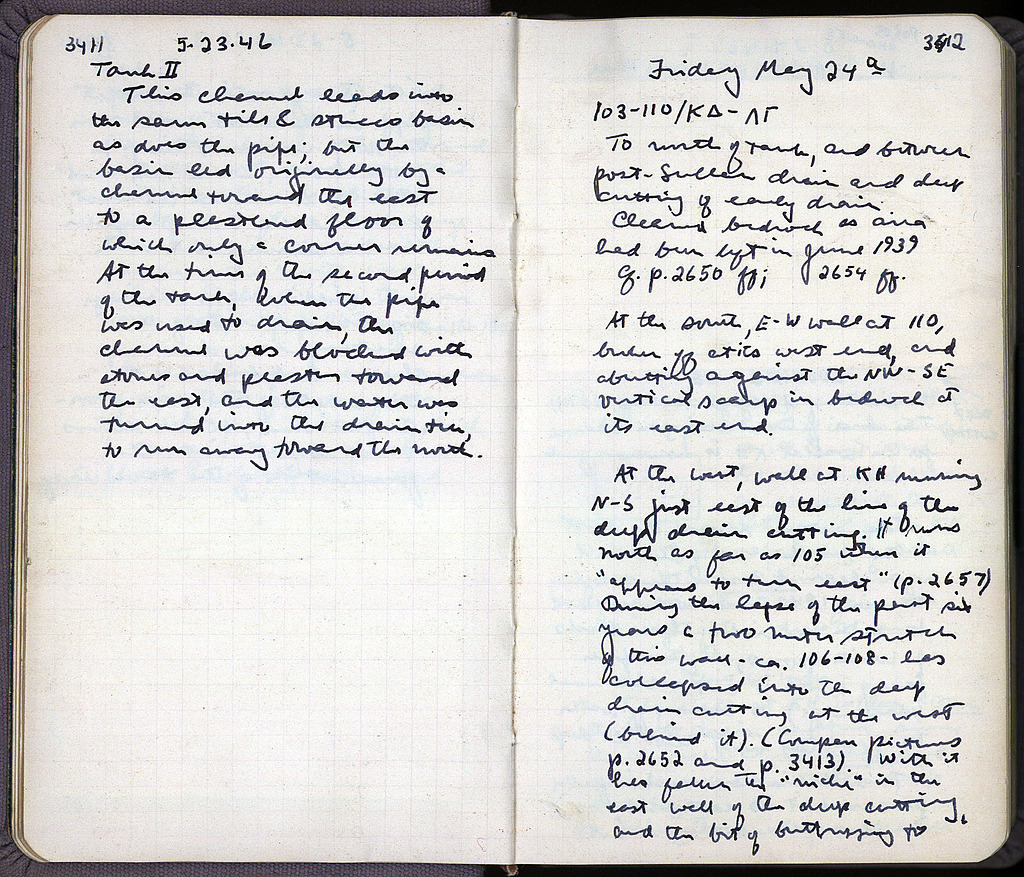 3411
5-23.46
Tank II
This channel leads into
the same tile & stucco basin
as does the pipe; but the
basin led originally by a
channel toward the east
to a plastered floor of
which only a corner remains
At the time of the second period
of the tank, when the pipe
was used to drain, the
channel was blocked with
stones and plaster toward
the east, and the water was
turned into the drain,
to run away toward the north.
3412
Friday May 24
103-110/ΚΔ-ΛΓ
To north of tank, and between
post-Sullan drain and deep
cutting of early drain.
Cleaned bedrock as area
had been left in June 1939
Cf. p. 2650 ff; 2654 ff.
At the south, E-W wall at 110,
broken off at its west end, and
abutting against the NW-SE
vertical scarp in bedrock at
its east end.
At the west, wall at ΚΗ running
N-S just east of the line of the
deep drain cutting. It runs
north as far as 105 where it
"appears to turn east" (p. 2657)
During the lapse of the past six
years a two meter stretch
of this wall - ca. 106-108 - has
collapsed into the deep
drain cutting at the west
(behind it). (Compare pictures
p. 2652 and p. 3413). With it
has fallen the "niche" in the
east wall of the deep cutting,
and the bit of buttressing to